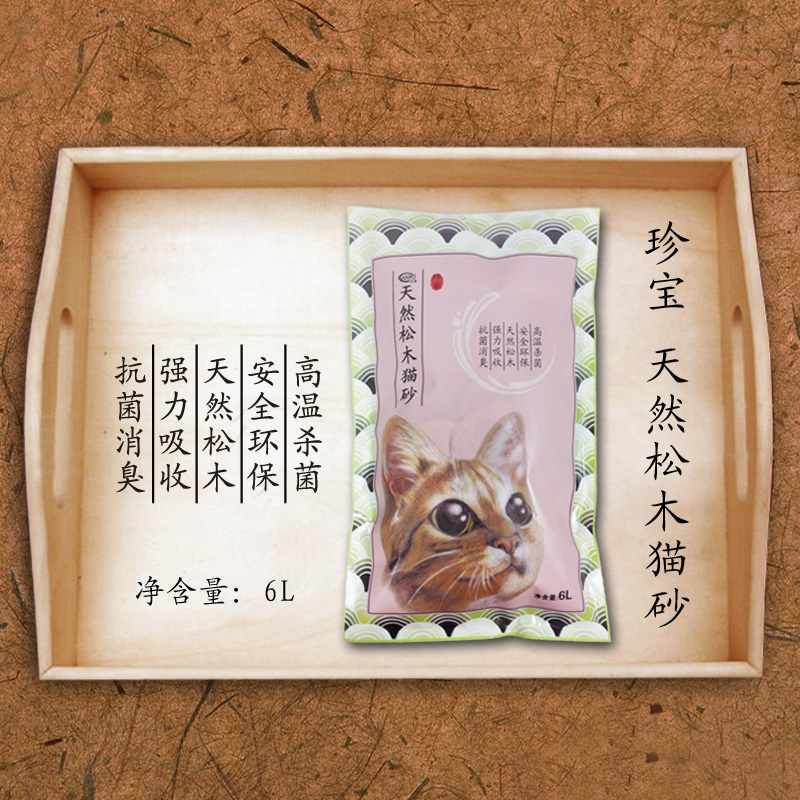 珍宝 天然松木猫砂
高温杀菌
安全环保
天然松木
强力吸收
抗菌消臭
净含量: 6L
天然松木猫砂
高温杀菌
安全环保
天然松木
强力吸收
抗菌消臭
净含量:6L